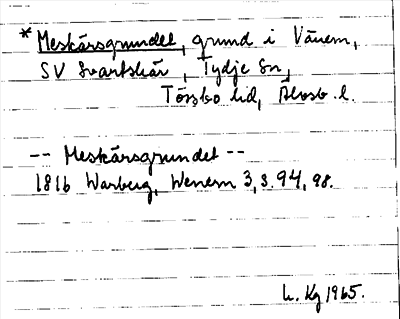 * Meskärsgrundet, grund i Vänern,
SV Svartskär, Tydje sn,
Tössbo hd, Älvsb. l.
-- Meskärsgrundet --
1816 Warberg, Wenern 3, s. 94, 98.
Kg 1965.